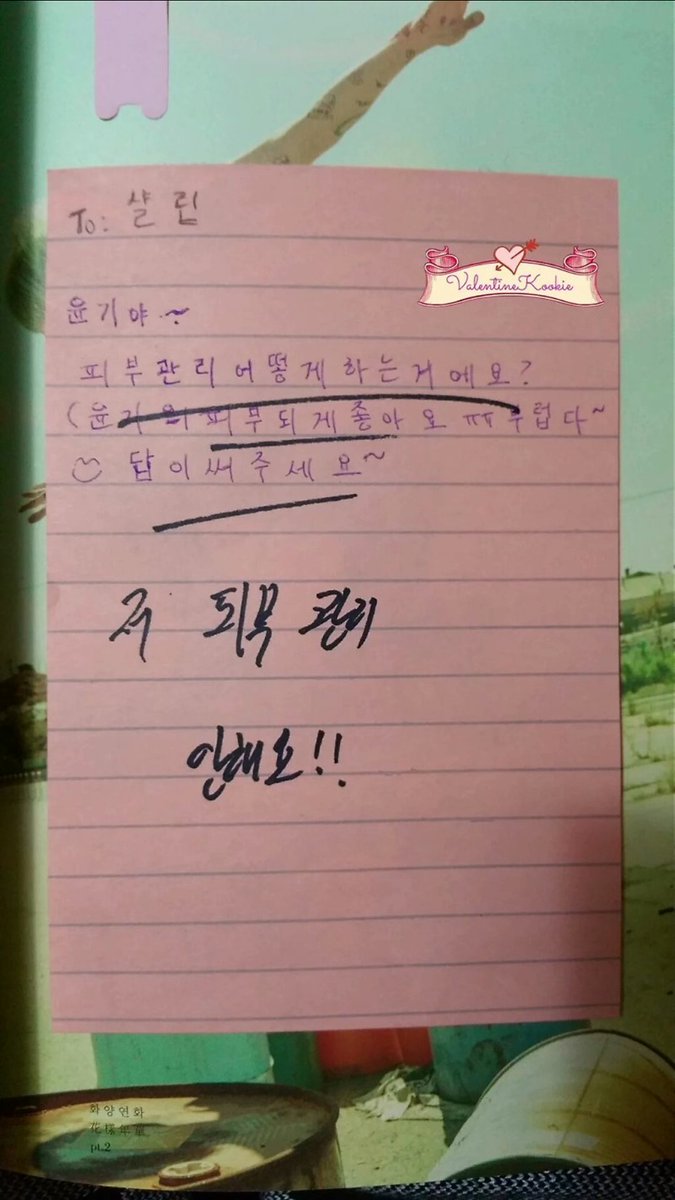 To: 샬린
ValentineKookie
윤기야~
피부관리 어떻게하는거에요?
(윤기의 피부되게좋아요 ㅠㅠ부럽다~
답이써주세요~
저 피부 관리
안해요!!
화양연화
花樣年華
pt.2